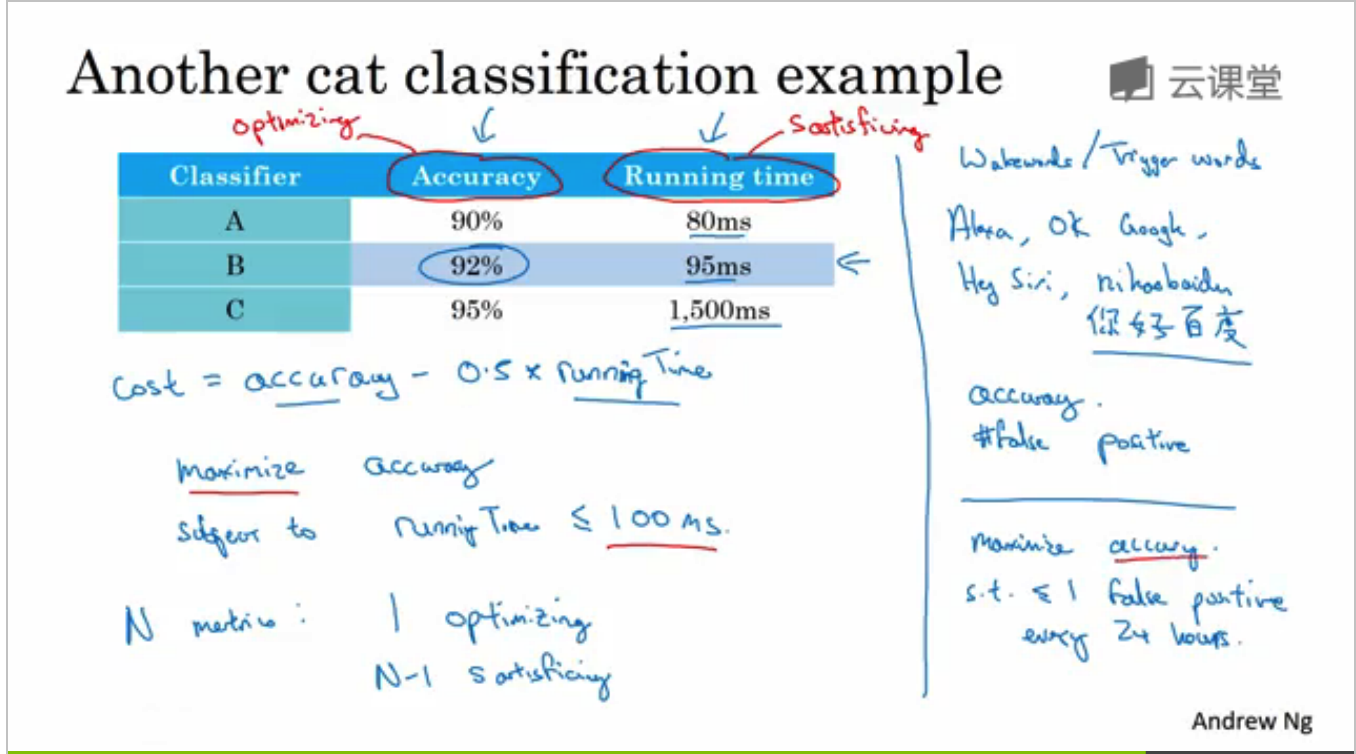 Another cat classification example
云课堂
optimizing
Satisficing
Classifier Accuracy Running time
A 90% 80ms
B 92% 95ms
C 95% 1,500ms
Cost = accuracy - 0.5 x running Time
maximize accuracy
subject to running Time ≤ 100 ms.
N metrics: 1 optimizing
N-1 satisficing
Wakewords / Trigger words
Alexa, OK Google,
Hey Siri, nihaobaidu
你好百度
accuracy.
#false positive
maximize accuracy.
s.t. ≤ 1 false positive
every 24 hours.
Andrew Ng